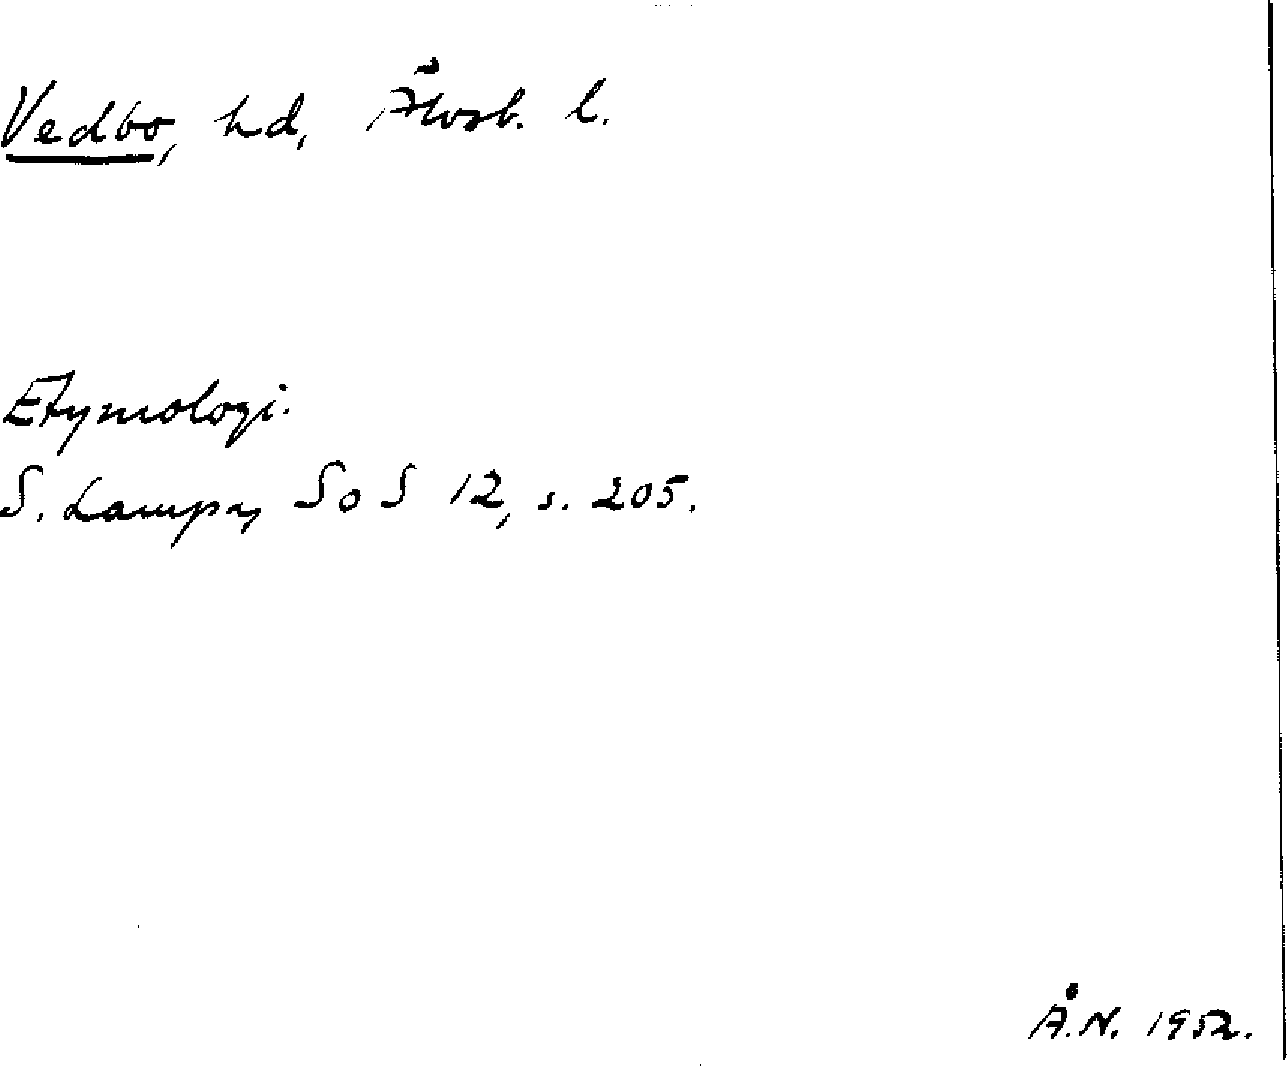 Vedbo, hd, Älvsb. l.
Etymologi.
S. Lampa, SoS 12, s. 205.
Å.N. 1952.